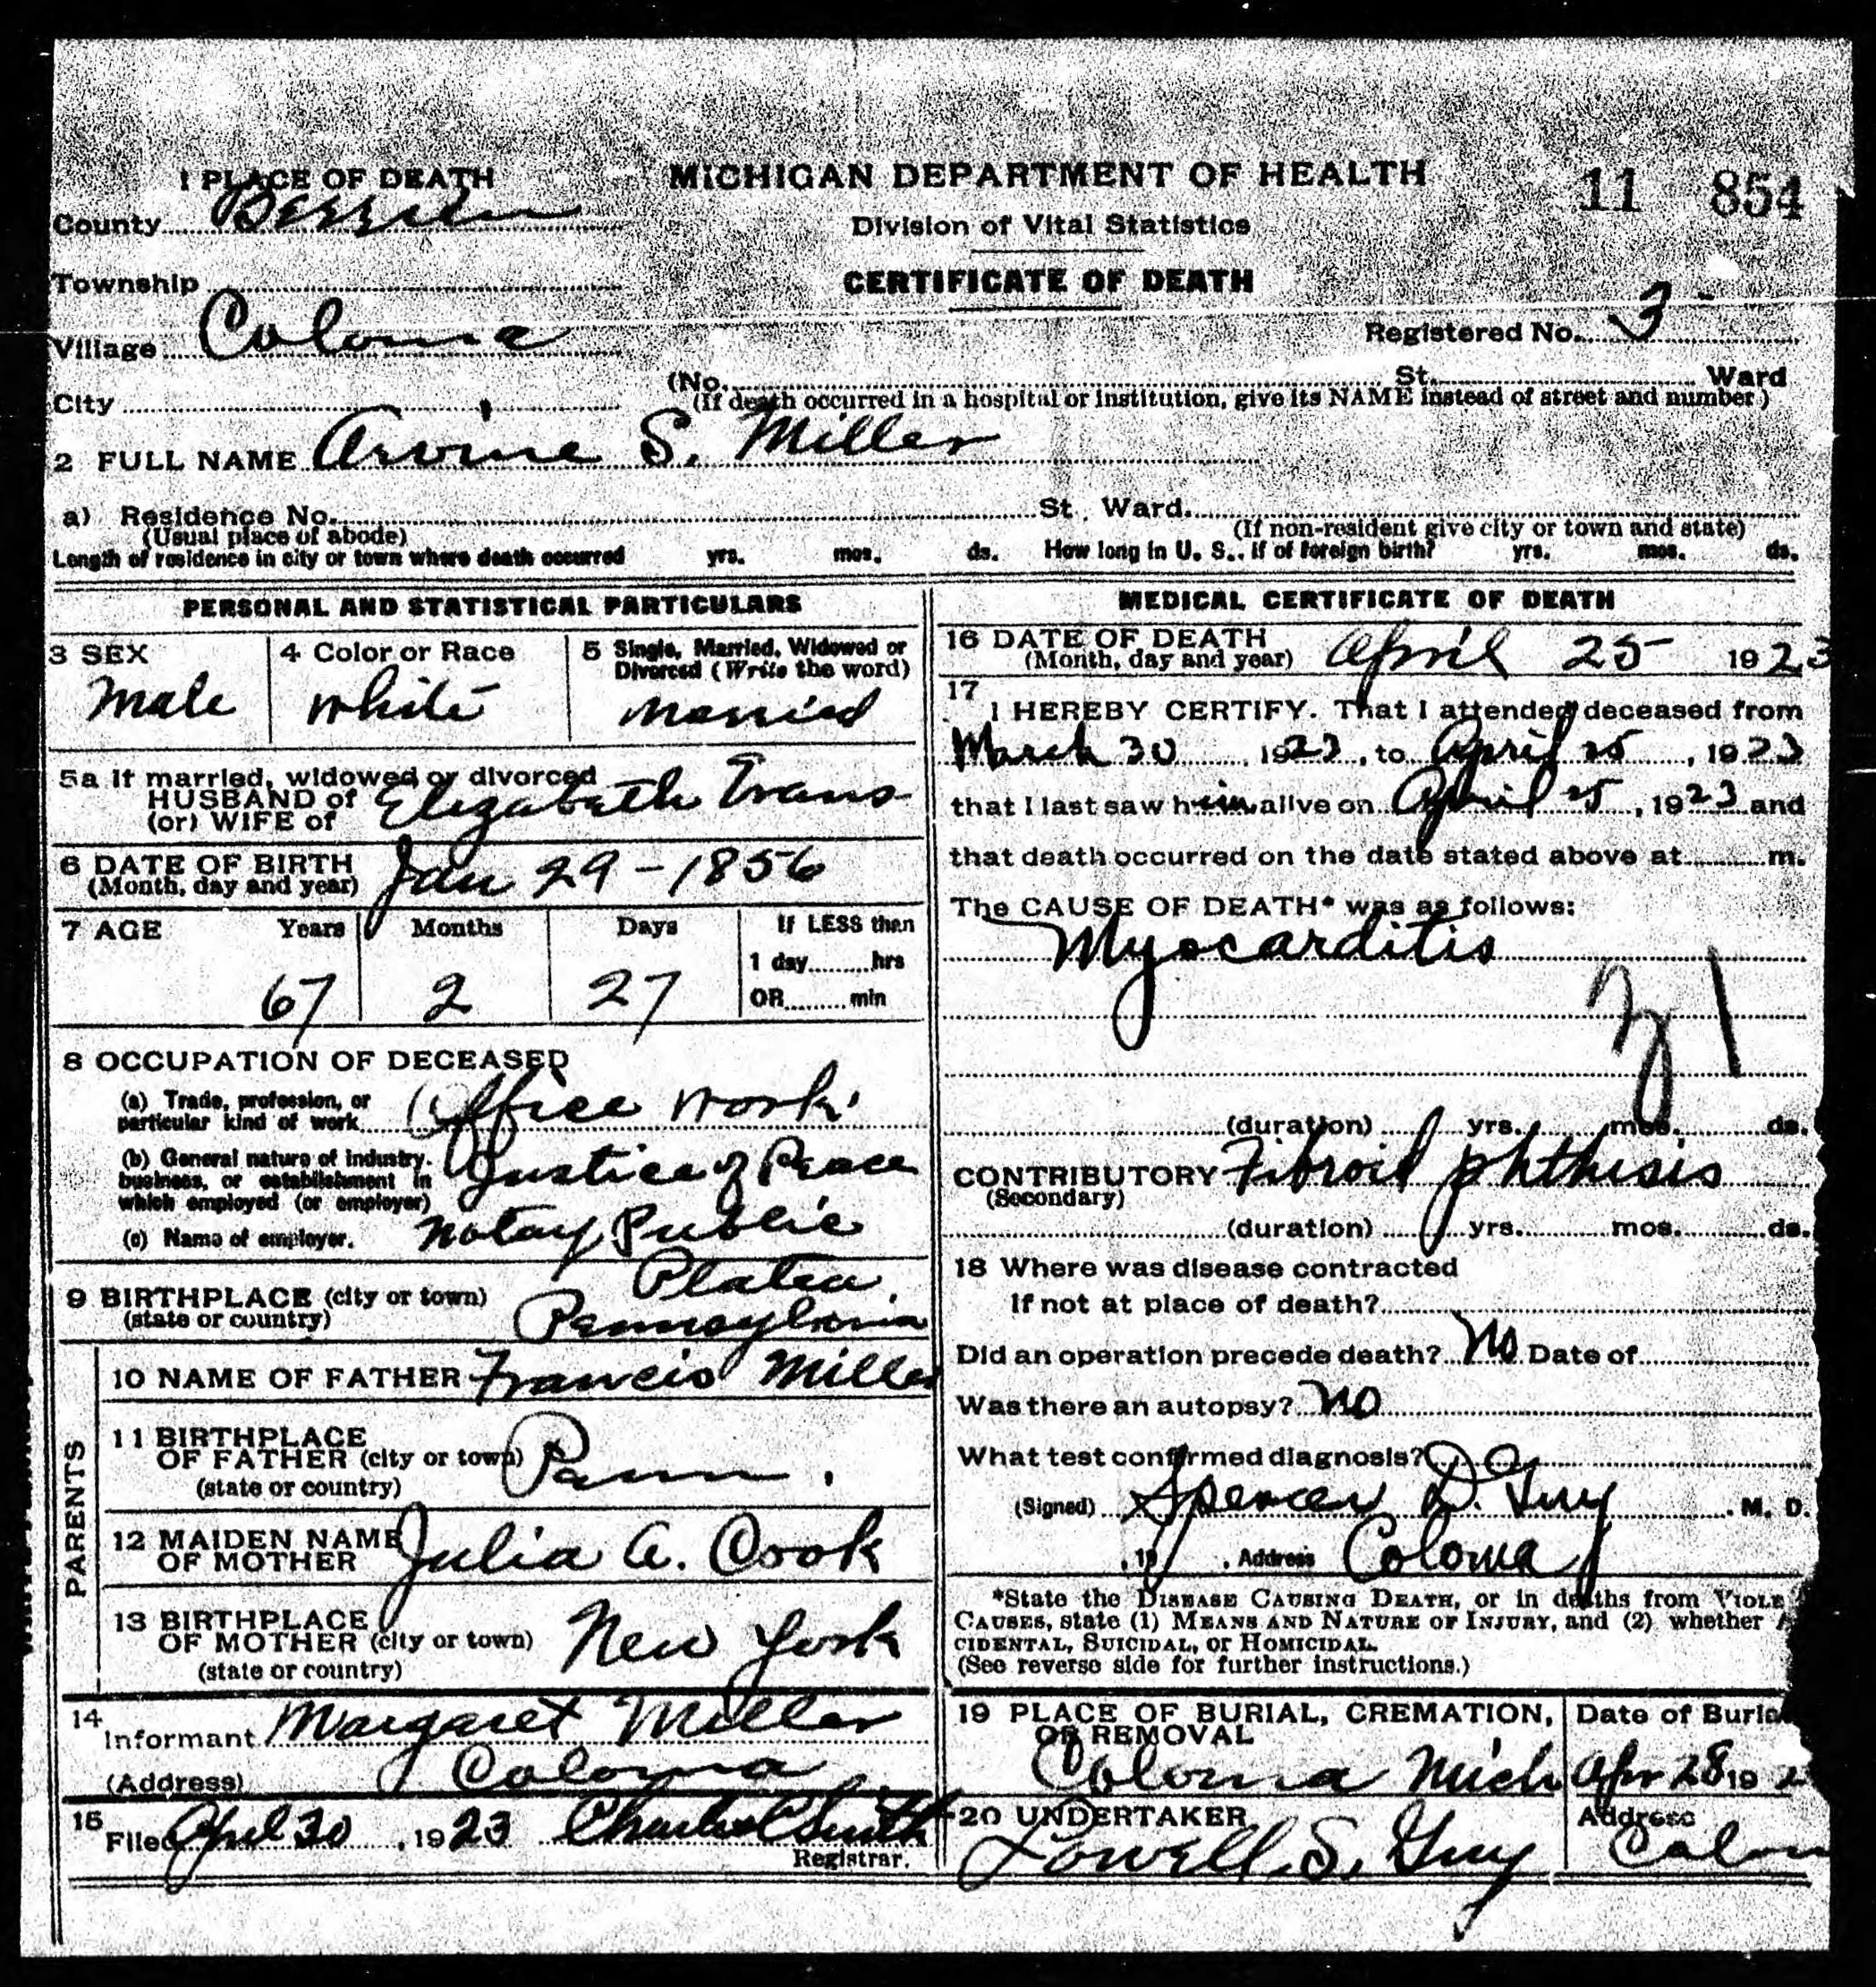 1 PLACE OF DEATH
MICHIGAN DEPARTMENT OF HEALTH
11 854
County Berrien
Division of Vital Statistics
Township
CERTIFICATE OF DEATH
Village Coloma
Registered No. 3
City
(No. St. Ward
(If death occurred in a hospital or institution, give its NAME instead of street and number.)
2 FULL NAME Arvine S. Miller
a) Residence No. St. Ward.
(Usual place of abode) (If non-resident give city or town and state)
Length of residence in city or town where death occurred yrs. mos. ds. How long in U. S., if of foreign birth? yrs. mos. ds.
PERSONAL AND STATISTICAL PARTICULARS
3 SEX
Male
4 Color or Race
White
5 Single, Married, Widowed or
Divorced (Write the word)
Married
5a If married, widowed or divorced
HUSBAND of
(or) WIFE of
Elizabeth Evans
6 DATE OF BIRTH
(Month, day and year)
Jan 29 - 1856
7 AGE Years Months Days If LESS than
1 day hrs
OR min
67 2 27
8 OCCUPATION OF DECEASED
(a) Trade, profession, or
particular kind of work Office Work
(b) General nature of industry,
business, or establishment in
which employed (or employer)
Justice of Peace
(c) Name of employer. Notay Public
9 BIRTHPLACE (city or town) Platea,
(state or country) Pennsylvania
PARENTS
10 NAME OF FATHER Francis Miller
11 BIRTHPLACE
OF FATHER (city or town)
(state or country)
Penn.
12 MAIDEN NAME
OF MOTHER
Julia A. Cook
13 BIRTHPLACE
OF MOTHER (city or town)
(state or country)
New York
14 Informant Margaret Miller
(Address) Coloma
15 Filed April 30, 1923 Charles C Smith
Registrar.
MEDICAL CERTIFICATE OF DEATH
16 DATE OF DEATH
(Month, day and year) April 25 1923
17
I HEREBY CERTIFY. That I attended deceased from
March 30, 1923, to April 25, 1923
that I last saw him alive on April 25, 1923 and
that death occurred on the date stated above at m.
The CAUSE OF DEATH* was as follows:
Myocarditis
31
(duration) yrs. mos. ds.
CONTRIBUTORY Fibroid phthisis
(Secondary)
(duration) yrs. mos. ds.
18 Where was disease contracted
If not at place of death?
Did an operation precede death? No Date of
Was there an autopsy? No
What test confirmed diagnosis?
(Signed) Spencer D. Guy M. D.
, 19 , Address Coloma
*State the DISEASE CAUSING DEATH, or in deaths from VIOLE
CAUSES, state (1) MEANS AND NATURE OF INJURY, and (2) whether A
CIDENTAL, SUICIDAL, or HOMICIDAL.
(See reverse side for further instructions.)
19 PLACE OF BURIAL, CREMATION,
OR REMOVAL
Coloma Mich
Date of Buria
Apr 28 192
20 UNDERTAKER
Lowell S. Guy
Address
Colom